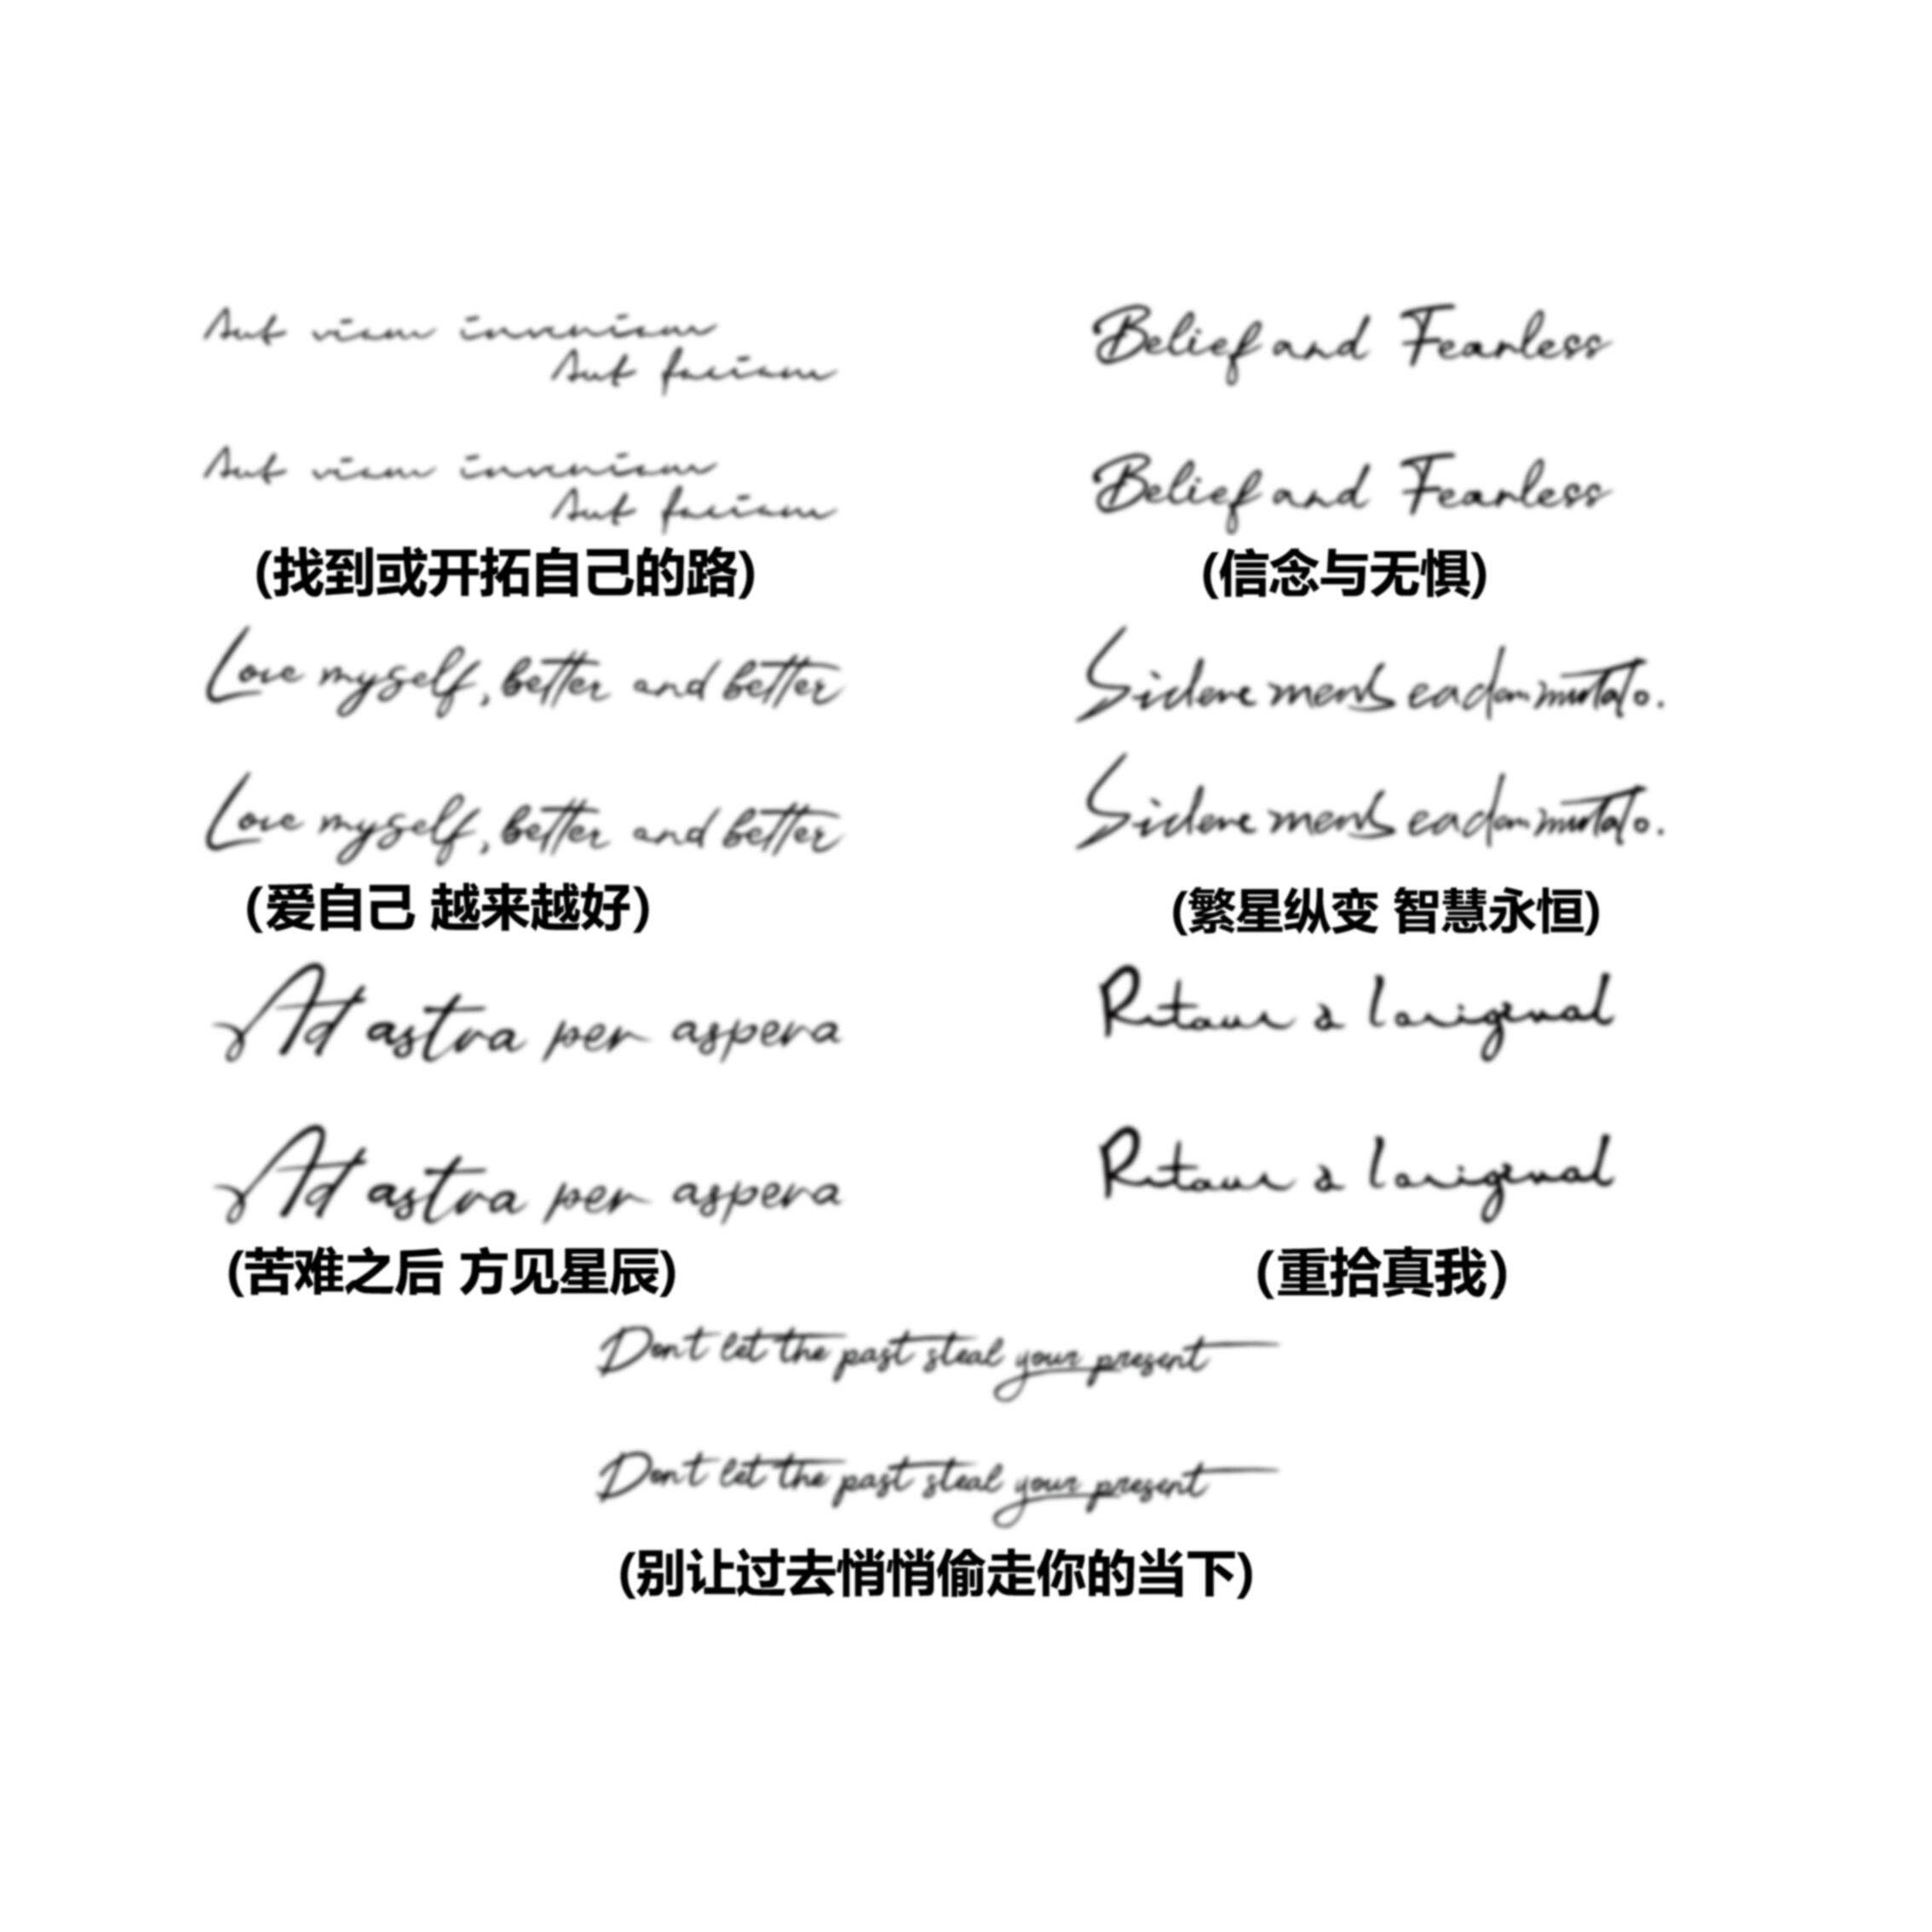 Aut viam inveniam
Aut faciam
Aut viam inveniam
Aut faciam
(找到或开拓自己的路)
Belief and Fearless
Belief and Fearless
(信念与无惧)
Love myself, better and better
Love myself, better and better
(爱自己 越来越好)
Sidere mens eadem mutato.
Sidere mens eadem mutato.
(繁星纵变 智慧永恒)
Ad astra per aspera
Ad astra per aspera
(苦难之后 方见星辰)
Retour à l'original
Retour à l'original
(重拾真我)
Don't let the past steal your present
Don't let the past steal your present
(别让过去悄悄偷走你的当下)